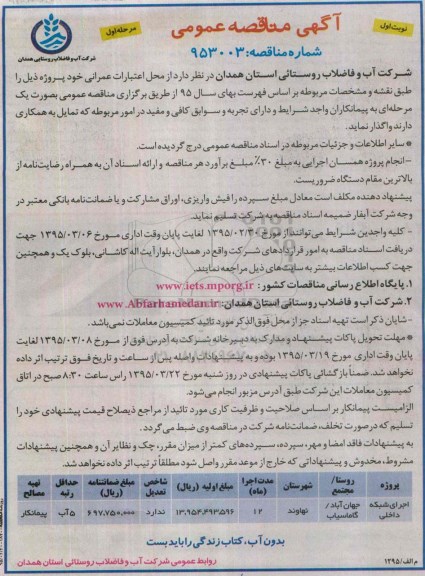 آگهی مناقصه عمومی
نوبت اول
مرحله اول
شرکت آب و فاضلاب روستایی همدان
شماره مناقصه: ۹۵۳۰۰۳
شرکت آب و فاضلاب روستائی استان همدان در نظر دارد از محل اعتبارات عمرانی خود پروژه ذیل را
طبق نقشه و مشخصات مربوطه بر اساس فهرست بهای سال ۹۵ از طریق برگزاری مناقصه عمومی بصورت یک
مرحله‌ای به پیمانکاران واجد شرایط و دارای تجربه و سوابق کافی و مفید در امور مربوطه که تمایل به همکاری
دارند واگذار نماید.
* سایر اطلاعات و جزئیات مربوطه در اسناد مناقصه عمومی درج گردیده است.
-انجام پروژه همسان اجرایی به مبلغ ۳۰٪ مبلغ برآورد هر مناقصه و ارائه اسناد آن به همراه رضایت‌نامه از
بالاترین مقام دستگاه ضروریست.
پیشنهاد دهنده مکلف است معادل مبلغ سپرده را فیش واریزی، اوراق مشارکت و یا ضمانت‌نامه بانکی معتبر در
وجه شرکت آبفار ضمیمه اسناد مناقصه به شرکت تسلیم نماید.
- کلیه واجدین شرایط می‌توانند از مورخ ۱۳۹۵/۰۲/۳۰ لغایت پایان وقت اداری مورخ ۱۳۹۵/۰۳/۰۶ جهت
دریافت اسناد مناقصه به امور قراردادهای شرکت واقع در همدان، بلوار آیت اله کاشانی، بلوک یک و همچنین
جهت کسب اطلاعات بیشتر به سایت‌های ذیل مراجعه نمایند.
۱. پایگاه اطلاع رسانی مناقصات کشور: www.iets.mporg.ir
۲. شرکت آب و فاضلاب روستائی استان همدان: www.Abfarhamedan.ir
- شایان ذکر است تهیه اسناد جز از محل فوق‌الذکر مورد تائید کمیسیون معاملات نمی‌باشد.
- مهلت تحویل پاکات پیشنهاد و مدارک به دبیرخانه شرکت به آدرس فوق از مورخ ۱۳۹۵/۰۳/۰۸ لغایت
پایان وقت اداری مورخ ۱۳۹۵/۰۳/۱۹ بوده و به پیشنهادات واصله پس از ساعت و تاریخ فوق ترتیب اثر داده
نخواهد شد. ضمناً بازگشائی پاکات پیشنهادی در روز شنبه مورخ ۱۳۹۵/۰۳/۲۲ راس ساعت ۸:۳۰ صبح در اتاق
کمیسیون معاملات این شرکت طبق آدرس مزبور انجام می‌شود.
الزامیست پیمانکار بر اساس صلاحیت و ظرفیت کاری مورد تائید از مراجع ذیصلاح قیمت پیشنهادی خود را
تسلیم که در صورت تخلف، ضمانت‌نامه شرکت در مناقصه وی ضبط می‌گردد.
به پیشنهادات فاقد امضا و مهر، سپرده، سپرده‌های کمتر از میزان مقرر، چک و نظایر آن و همچنین پیشنهادات
مشروط، مخدوش و پیشنهاداتی که خارج از موعد مقرر واصل شود مطلقاً ترتیب اثر داده نخواهد شد.
پروژه | روستا/مجتمع | شهرستان | مدت اجرا (ماه) | مبلغ اولیه (ریال) | شاخص تعدیل | مبلغ ضمانتنامه (ریال) | حداقل رتبه | تهیه مصالح
اجرای شبکه داخلی | جهان‌آباد/گاماسیاب | نهاوند | ۱۲ | ۱۳.۹۵۴.۴۹۳.۵۹۶ | ندارد | ۶۹۷.۷۵۰.۰۰۰ | ۵ آب | پیمانکار
بدون آب، کتاب زندگی را باید بست
روابط عمومی شرکت آب و فاضلاب روستائی استان همدان
م الف/۱۲۹۵